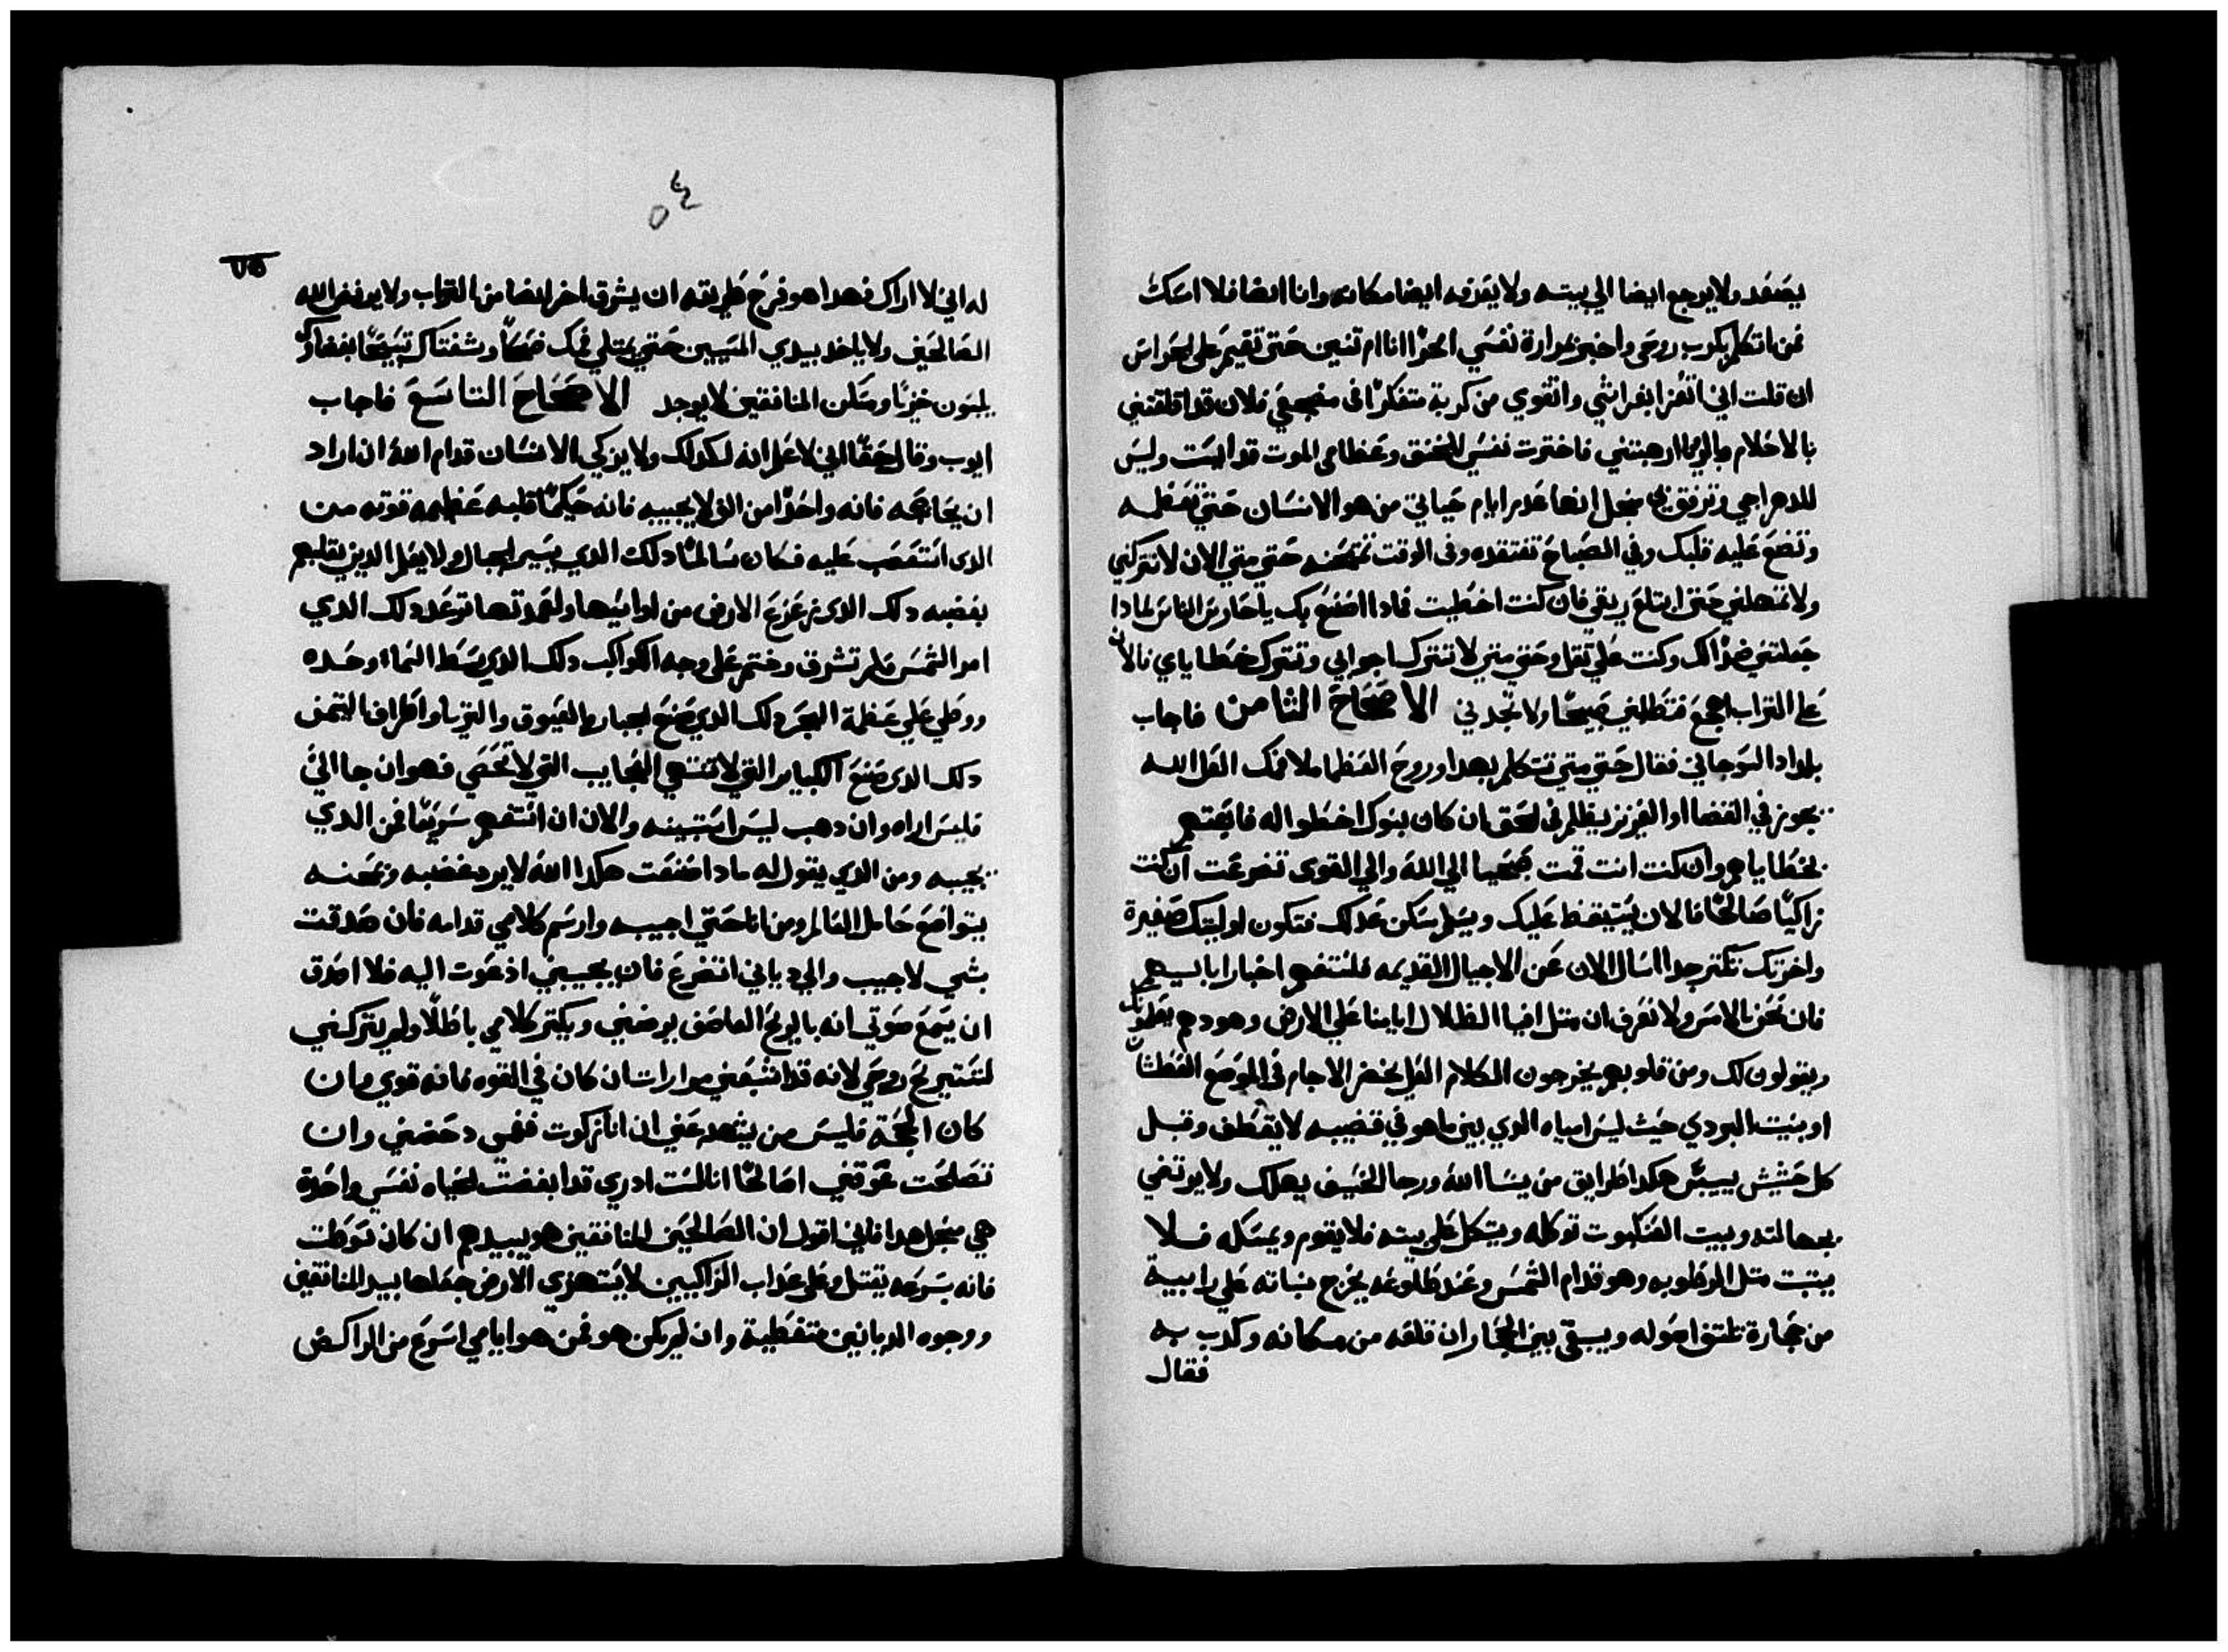 يصعد ولا يرجع ايضا الي بيته ولا يعرفه ايضا مكانه وانا ايضا فلا امسك
فمي اتكلم بكرب روحي واخبر بمرارة نفسي ابحرًا انا ام تنين حتي تقيم علي الحراس
ان قلت اني اتعزا بفراشي واتقوي من كربة متفكرًا في مضجعي فلان قد اقلقتني
بالاحلام وبالرويا ارهبتني فاختارت نفسي الخنق وعظامي الموت قد ايست وليس
للدهر احيي وترفق بي منجل انها عدم ايام حياتي من هو الانسان حتي تعظمه
وتضع عليه قلبك وفي الصباح تفتقده وفي الوقت تمتحنه حتي متي الان لا تتركني
ولا تمهلني حتي ابتلع ريقي فان كنت اخطيت فمادا اصنع بك يا حارس الناس لمادا
جعلتني ضدًا لك وكنت علي تقل وحتي متي لا تترك اجرامي وتترك خطاياي فالان
علي التراب اهجع فتطلبني صبيحًا ولا تجدني الاصحاح التامن فاجاب
بلداد السوحاني فقال حتي متي تتكلم بهدا وروح العظما ملا فمك العل الله
يجوز في القضا او العزيز يظلم في الحق ان كان بنوك اخطوا له فابعتهم
بخطاياهم وان كنت انت قمت صبحيا الي الله والي القوي تضرعت ان كنت
زاكيًا صالحًا فالان يستيقظ عليك ويسلم سكن عدلك فتكون اوليتك صغيرة
واخرتك تكتر جدا اسال الان عن الاجيال القديمه فلنتفهم اخبار اباييهم
فان نحن بالامس ولا نعرف ان متل افيا الظلال ايامنا علي الارض وهودهم يعلمونك
ويقولون لك ومن قلوبهم يخرجون الكلام العل يخضر الاجام في الموضع العطشان
او ينبت البردي حيث ليس امياه الدي بينما هو في قضيبه لا يقطف وقبل
كل حشيش ييبس هكدا طرايق من ينسا الله ورجا الحنيف يهلك ولا يرتضي
بجهالته وبيت العنكبوت توكله ويتكل علي بيته فلا يقوم ويمسكه فلا
يتبت متل الرطوبه وهو قدام الشمس وعند طلوعه يخرج نباته علي رابية
من حجارة تلتف اصوله ويبقي بين الحجار ان قلعه من مكانه وكدب به
فقال
٥٤
٧٥
له اني لا اراك فهدا هو فرح طريقه ان يشرق اخر ايضا من التراب ولا يرفض الله
الصالحين ولا ياخد بيدي المسيين حتي يمتلي فمك ضحكًا وشفتاك تسبيحًا مبغضوك
يلبسون خزيًا ومسكن المنافقين لا يوجد الاصحاح التاسع فاجاب
ايوب وقال حقًا اني لاعلم انه لكدلك ولا يزكي الانسان قدام الله ان اراد
ان يحاججه فانه واحدًا من الف لا يجيبه فانه حكيمًا قلبه عظيمه قوته من
الدي استصعب عليه فكان سالمًا دلك الدي يسير الجبال ولا يعلم الدين يقلبهم
بغضبه دلك الدي يزعزع الارض من اواسيها ولعمدتها ترعد دلك الدي
امر الشمس فلم تشرق وختم علي وجه الكواكب دلك الدي بسط السماء وحده
ووطي علي عظمة البحر دلك الدي صنع الجبار والعيوق والتريا واطراف التيمن
دلك الدي صنع الكباير التي لا تنتهي العجايب التي لا تحصي فهو ان جا الي
فليس اراه وان دهب ليس استبينه والان ان انتهر سريعًا فمن الدي
يجيبه ومن الدي يقول له مادا صنعت هكدا الله لا يرد غضبه وتحته
يتواضع حاملا العالم ومن انا حتي اجيبه وارسم كلامي قدامه فان صدقت
بشي لاجيب والي دياني اتضرع فان يجيبني اد دعوت اليه فلا اصدق
ان يسمع صوتي انه بالريح العاصف يرضني ويكتر كلامي باطلًا ولم يتركني
لتستريح روحي لانه قد اشبعني مرارات ان كان في القوه فانه قوي وان
كان الحجة فليس من يشهد عني ان انا زكوت ففمي دحضني وان
تصلحت عوقني اصالحًا انا لست ادري قد ابغضت الحياه نفسي واحدة
هي منجل هدا فاني اقول ان الصالحين المنافقين هو يبيدهم ان كان سوطت
فانه بسرعه يقتل وعلي عداب الزاكيين لا يستهزي الارض جعلها بيد المنافقين
ووجوه الديانين متغطية وان لم يكن هو فمن هو ايامي اسرع من الراكض